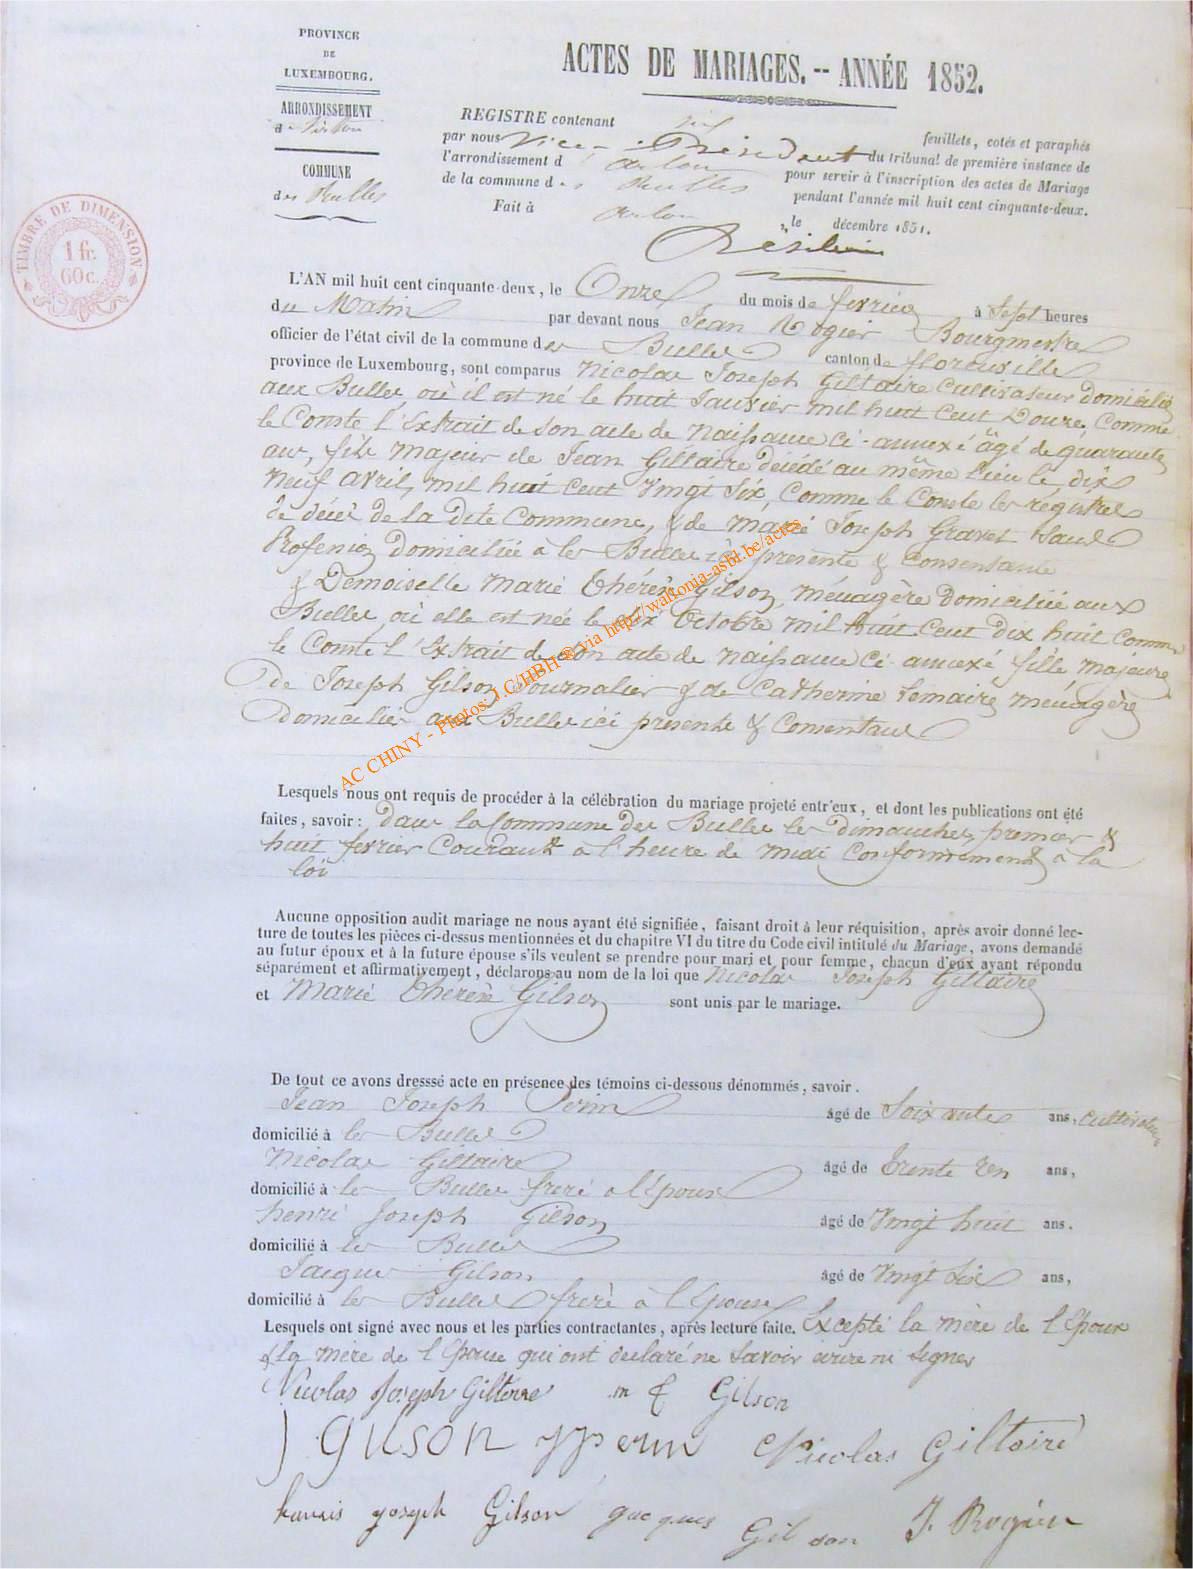 PROVINCE
DE
LUXEMBOURG.
ARRONDISSEMENT
de Virton
COMMUNE
des Bulles
TIMBRE DE DIMENSION
1 fr.
60 c.
ACTES DE MARIAGES. -- ANNÉE 1852.
REGISTRE contenant six feuillets, cotés et paraphés
par nous Vice-Président du tribunal de première instance de
l'arrondissement d'Arlon pour servir à l'inscription des actes de Mariage
de la commune des Bulles pendant l'année mil huit cent cinquante-deux.
Fait à Arlon, le décembre 1851.
L'AN mil huit cent cinquante-deux, le Onze, du mois de fevrier à Sept heures
du Matin par devant nous Jean Rogier Bourgmestre
officier de l'état civil de la commune des Bulles canton de florenville
province de Luxembourg, sont comparus Nicolas Joseph Giltaire Cultivateur domicilié
aux Bulles, où il est né le huit Janvier mil huit Cent Douze, Comme
le Conste l'Extrait de son acte de Naissance Ci-annexé âgé de quarante
ans, fils Majeur de Jean Giltaire décédé au même lieu le dix
Neuf avril, mil huit Cent Vingt Six, Comme le Conste les régistres
de décès de la dite Commune, & de Marie Joseph Gravet Sans
Profession domiciliée à les Bulles ici présente & Consentante
& Demoiselle Marie Thérèse Gilson, ménagère domiciliée aux
Bulles, où elle est née le Six Octobre mil huit Cent dix huit Comme
le Conste l'Extrait de son acte de Naissance Ci-annexé fille majeure
de Joseph Gilson Journalier & de Catherine Lemaire ménagère
domiciliés aux Bulles ici présents & Consentans
Lesquels nous ont requis de procéder à la célébration du mariage projeté entr'eux, et dont les publications ont été
faites, savoir: dans la Commune des Bulles les Dimanches, premier &
huit fevrier Courant à l'heure de midi Conformément à la
loi
Aucune opposition audit mariage ne nous ayant été signifiée, faisant droit à leur réquisition, après avoir donné lec-
ture de toutes les pièces ci-dessus mentionnées et du chapitre VI du titre du Code civil intitulé du Mariage, avons demandé
au futur époux et à la future épouse s'ils veulent se prendre pour mari et pour femme, chacun d'eux ayant répondu
séparément et affirmativement, déclarons au nom de la loi que Nicolas Joseph Giltaire
et Marie Thérèse Gilson sont unis par le mariage.
De tout ce avons dresssé acte en présence des témoins ci-dessous dénommés, savoir.
Jean Joseph Perin âgé de Soixante ans, Cultivateur
domicilié à les Bulles
Nicolas Giltaire âgé de Trente ans,
domicilié à les Bulles frere à l'Epoux
henri Joseph Gilson âgé de Vingt huit ans.
domicilié à les Bulles
Jacques Gilson âgé de Vingt Six ans,
domicilié à les Bulles frere à l'Epouse
Lesquels ont signé avec nous et les parties contractantes, après lecture faite. Excepté la mère de l'Epoux
& la mère de l'Epouse qui ont declaré ne savoir écrire ni signer
Nicolas Joseph Giltaire m t Gilson
J Gilson jjperin Nicolas Giltaire
Joseph Gilson Jacques Gilson J. Rogier
AC CHINY - Photos J.C/HBH ® via http://wallonia-asbl.be/actes